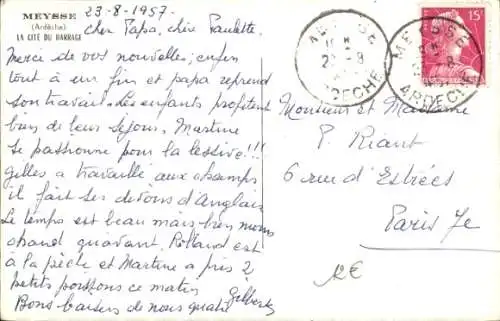 MEYSSE
(Ardèche)
LA CITÉ DU BARRAGE
23-8-1957-
Cher Papa, chère Paulette,
Merci de vos nouvelles; enfin
tout a une fin et papa reprend
son travail. Les enfants profitent
bien de leur séjour. Martine
se passionne pour la lessive!!!
Gilles a travaillé aux champs
il fait ses devoirs d'Anglais
Le temps est beau mais bien moins
chaud qu'avant. Rolland est
à la pêche et Martine a pris 2
petits poissons ce matin
Bons baisers de nous quatre
Gilberte
MEYSSE
ARDECHE
MEYSSE
ARDECHE
15F
Monsieur et Madame
P. Riant
6 rue d'Estrées
Paris 7e
2€